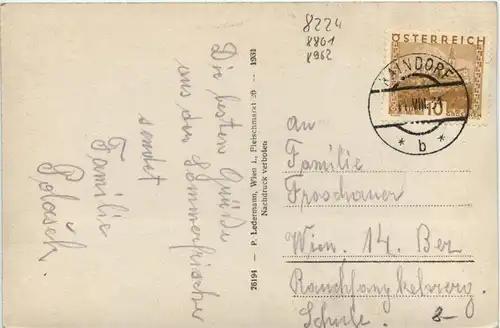 8224
8801
8962
ÖSTERREICH
KAINDORF
VIII
10
* b *
Die besten Grüße
aus der Sommerfrische
sendet
Familie
Polasek.
26194 — P. Ledermann, Wien I., Fleischmarkt 20 — 1931
Nachdruck verboten
An
Familie
Froschauer
Wien. 14. Bez
Rauchfangkehrerg.
Schule.
8-